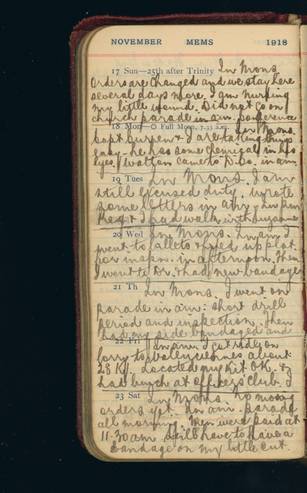 NOVEMBER MEMS 1918
17 Sun—25th after Trinity In Mons.
Orders are changed and we stay here
several days more. I am nursing
my little wound. Did not go on
church parade in a.m. Conference
18 Mon—O Full Moon, 7.33 a.m. In Mons.
Capt. & I are taking things
easy - he has some in his
eyes. Walton came to D.D.O. in a.m.
19 Tues In Mons. I am
still excused duty. Wrote
some letters in a.m. &
Reg & I had walk in the p.m.
20 Wed In Mons. In a.m. I
went to up plot
for in afternoon. Then
I went to Dr. & had new bandage
21 Th In Mons. I went on
parade in a.m.: short drill
period and inspection. Then
had my side bandaged and
22 Fri In a.m. I got ride on
lorry to Valenciennes about
28 K. Located my kit O.K. &
had lunch at officers club. I
23 Sat In Mons. No moving
orders yet. In a.m. parade
all morning. Men were paid at
11.30 a.m. Still have to have a
bandage on my little cut.